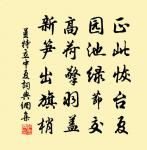 正此恢台夏
园池绿荫交
高荷擎羽盖
新笋出旗梢
姜特立中夏詞典網集